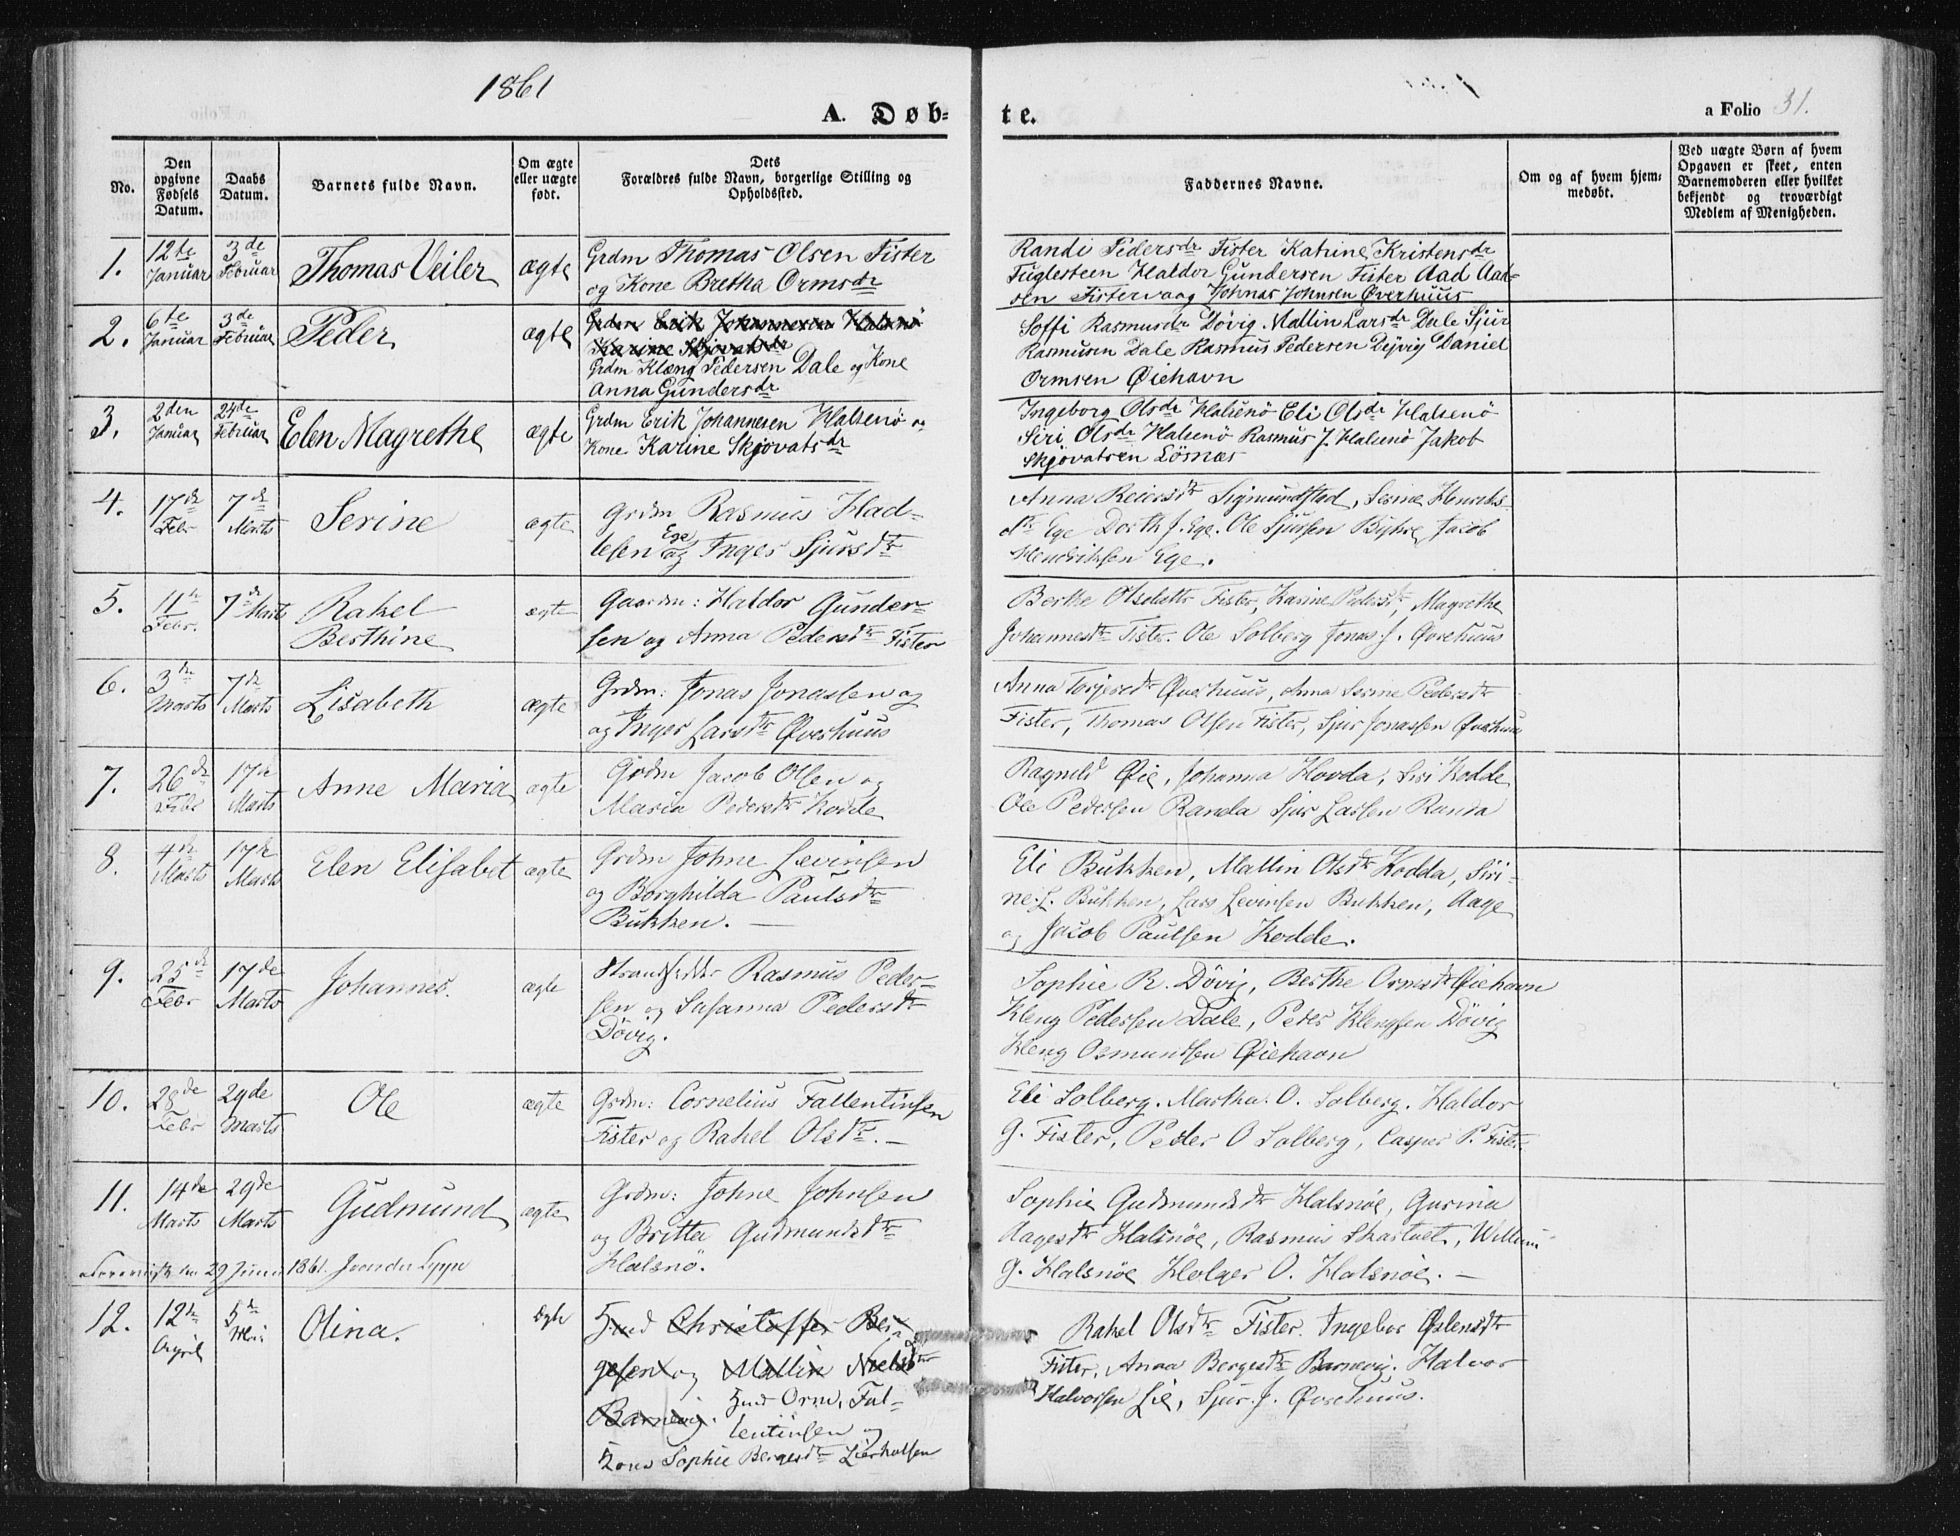 1861
A. Døb-
te.
a Folio 31.
No.
Den opgivne Fødsels Datum.
Daabs Datum.
Barnets fulde Navn.
Om ægte eller uægte født.
Dets
Forældres fulde Navn, borgerlige Stilling og
Opholdssted.
Faddernes Navne.
Om og af hvem hjem-
medøbt.
Ved uægte Børn af hvem
Opgaven er skeet, enten
Barnemoderen eller hvilket
bekjendt og troværdigt
Medlem af Menigheden.
1.
12te Januar
3de Februar
Thomas Veiler
ægte
Grdm Thomas Olsen Fister
og Kone Bretha Ormsdr
Randi Pedersdr Fister Katrine Kristensdr
Fuglesteen Haldor Gundersen Fister Aad Aad-
sen Fistervaag Johnas Johnsen Øverhuus
2.
6te Januar
3de Februar
Peder
ægte
Grdm Erik Johannesen Halsnø
Karine Skjovatsdr
Grdm Klæng Pedersen Dale og Kone
Anna Gundersdr
Soffi Rasmusdr Døvig. Mallin Larsdr Dale Sjur
Rasmusen Dale Rasmus Pedersen Døjvig Daniel
Ormsen Øiehavn
3.
2den Januar
24de Februar
Elen Magrethe
ægte
Grdm Erik Johannesen Halsenø og
Kone Karine Skjovatsdr
Ingeborg Olsdr Halsenø Eli Olsdr Halsenø
Siri Olsdr Halsenø Rasmus J. Halsenø Jakob
Skjovatsen Lösnæs
4.
17de Febr
7de Marts
Serine
ægte
Grdm Rasmus Had-
lesen Ege og Inger Sjursdtr
Anna Reiersdtr Sigmundstad, Serine Henriks-
dtr Ege Dorth J. Ege. Ole Sjursen Byhre Jacob
Hendriksen Ege.
5.
11te Febr.
7de Marts
Rakel
Berthine
ægte
Gaardm: Haldor Gunder-
sen og Anna Pedersdtr Fister
Berthe Olsdatter Fister, Karine Pedersdtr, Magrethe
Johannesdtr Fister. Ole Solberg Jonas J. Øverhuus
6.
3de Marts
7de Marts
Lisabeth
ægte
Grdm: Jonas Jonassen og
og Inger Larsdtr Øverhuus
Anna Torjersdtr Øverhuus, Anna Serine Pedersdtr
Fister, Thomas Olsen Fister, Sjur Jonassen Øverhuus
7.
26de Febr
17de Marts
Anne Maria
ægte
Grdm Jacob Olsen og
Maria Pedersdtr Kodde
Ragnild Øie, Johanna Hovda, Siri Kodde
Ole Pedersen Randa Sjur Larsen Randa
8.
4de Marts
17de Marts
Elen Elisabet
ægte
Grdm Johne Levinsen
og Borghilda Paulsdtr
Bukken. —
Eli Bukken, Mallin Olsdtr Kodda, Siri-
ne L. Bukken, Lars Levinsen Bukken, Aage
og Jacob Paulsen Kodde.
9.
25de Febr
17de Marts
Johannes.
ægte
Strandsidder Rasmus Peder-
sen og Susanna Pedersdtr
Døvig.
Sophie R. Døvig, Berthe Ormsdtr Øiehavn
Kleng Pedersen Dale, Peder Klengsen Døvig
Kleng Osmundsen Øiehavn
10.
28de Febr
29de Marts
Ole
ægte
Grdm: Cornelius Fallentinsen
Fister og Rakel Olsdtr. —
Eli Solberg. Martha. O. Solberg. Haldor
G. Fister, Peder O Solberg, Casper P. Fister.
11.
14de Marts
29de Marts
Gudmund
ægte
Grdm: Johne Johnsen
og Britta Gudmundsdtr
Halsnø.
Sophie Gudmundsdtr Halsnøe, Gurina
Aagesdtr Halsnøe, Rasmus Skartvet, Willum
G. Halsnøe Holger O. Halsnøe. —
29 Juni 1861.
12.
12te April
5te Mai
Olina.
ægte
Hmd Christoffer Bei-
gesen og Mallin Nielsdtr
Barnevig. Hmd Orm Fal-
lentinsen og
Kone Sophie Bergesdtr Lierholsen
Rakel Olsdtr Fister. Ingebor Østensdtr
Fister, Anna Bergesdtr Barnevig. Halvor
Halvorsen Lie, Sjur. J. Øvrehuus.